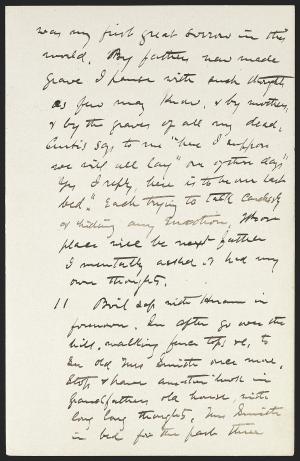 was my first great sorrow in this
world. By fathers new made
grave I pause with such thoughts
as few may know, & by mothers,
& by the graves of all my dead.
Curtis says to me "here I suppose
we will all lay" one of these days"
Yes I reply, here is to be our last
bed." Each trying to talk carelessly
& hiding any emotion, Whose
place will be next father
I mentally asked. & had my
own thoughts.
11 Boil sap with Hiram in
forenoon. In after go over the
hill, walking fence tops &c, to
see old Mrs Smith once more,
Stop & have another look in
Grandfathers old house, with
long long thoughts, Mrs Smith
in bed for the past three